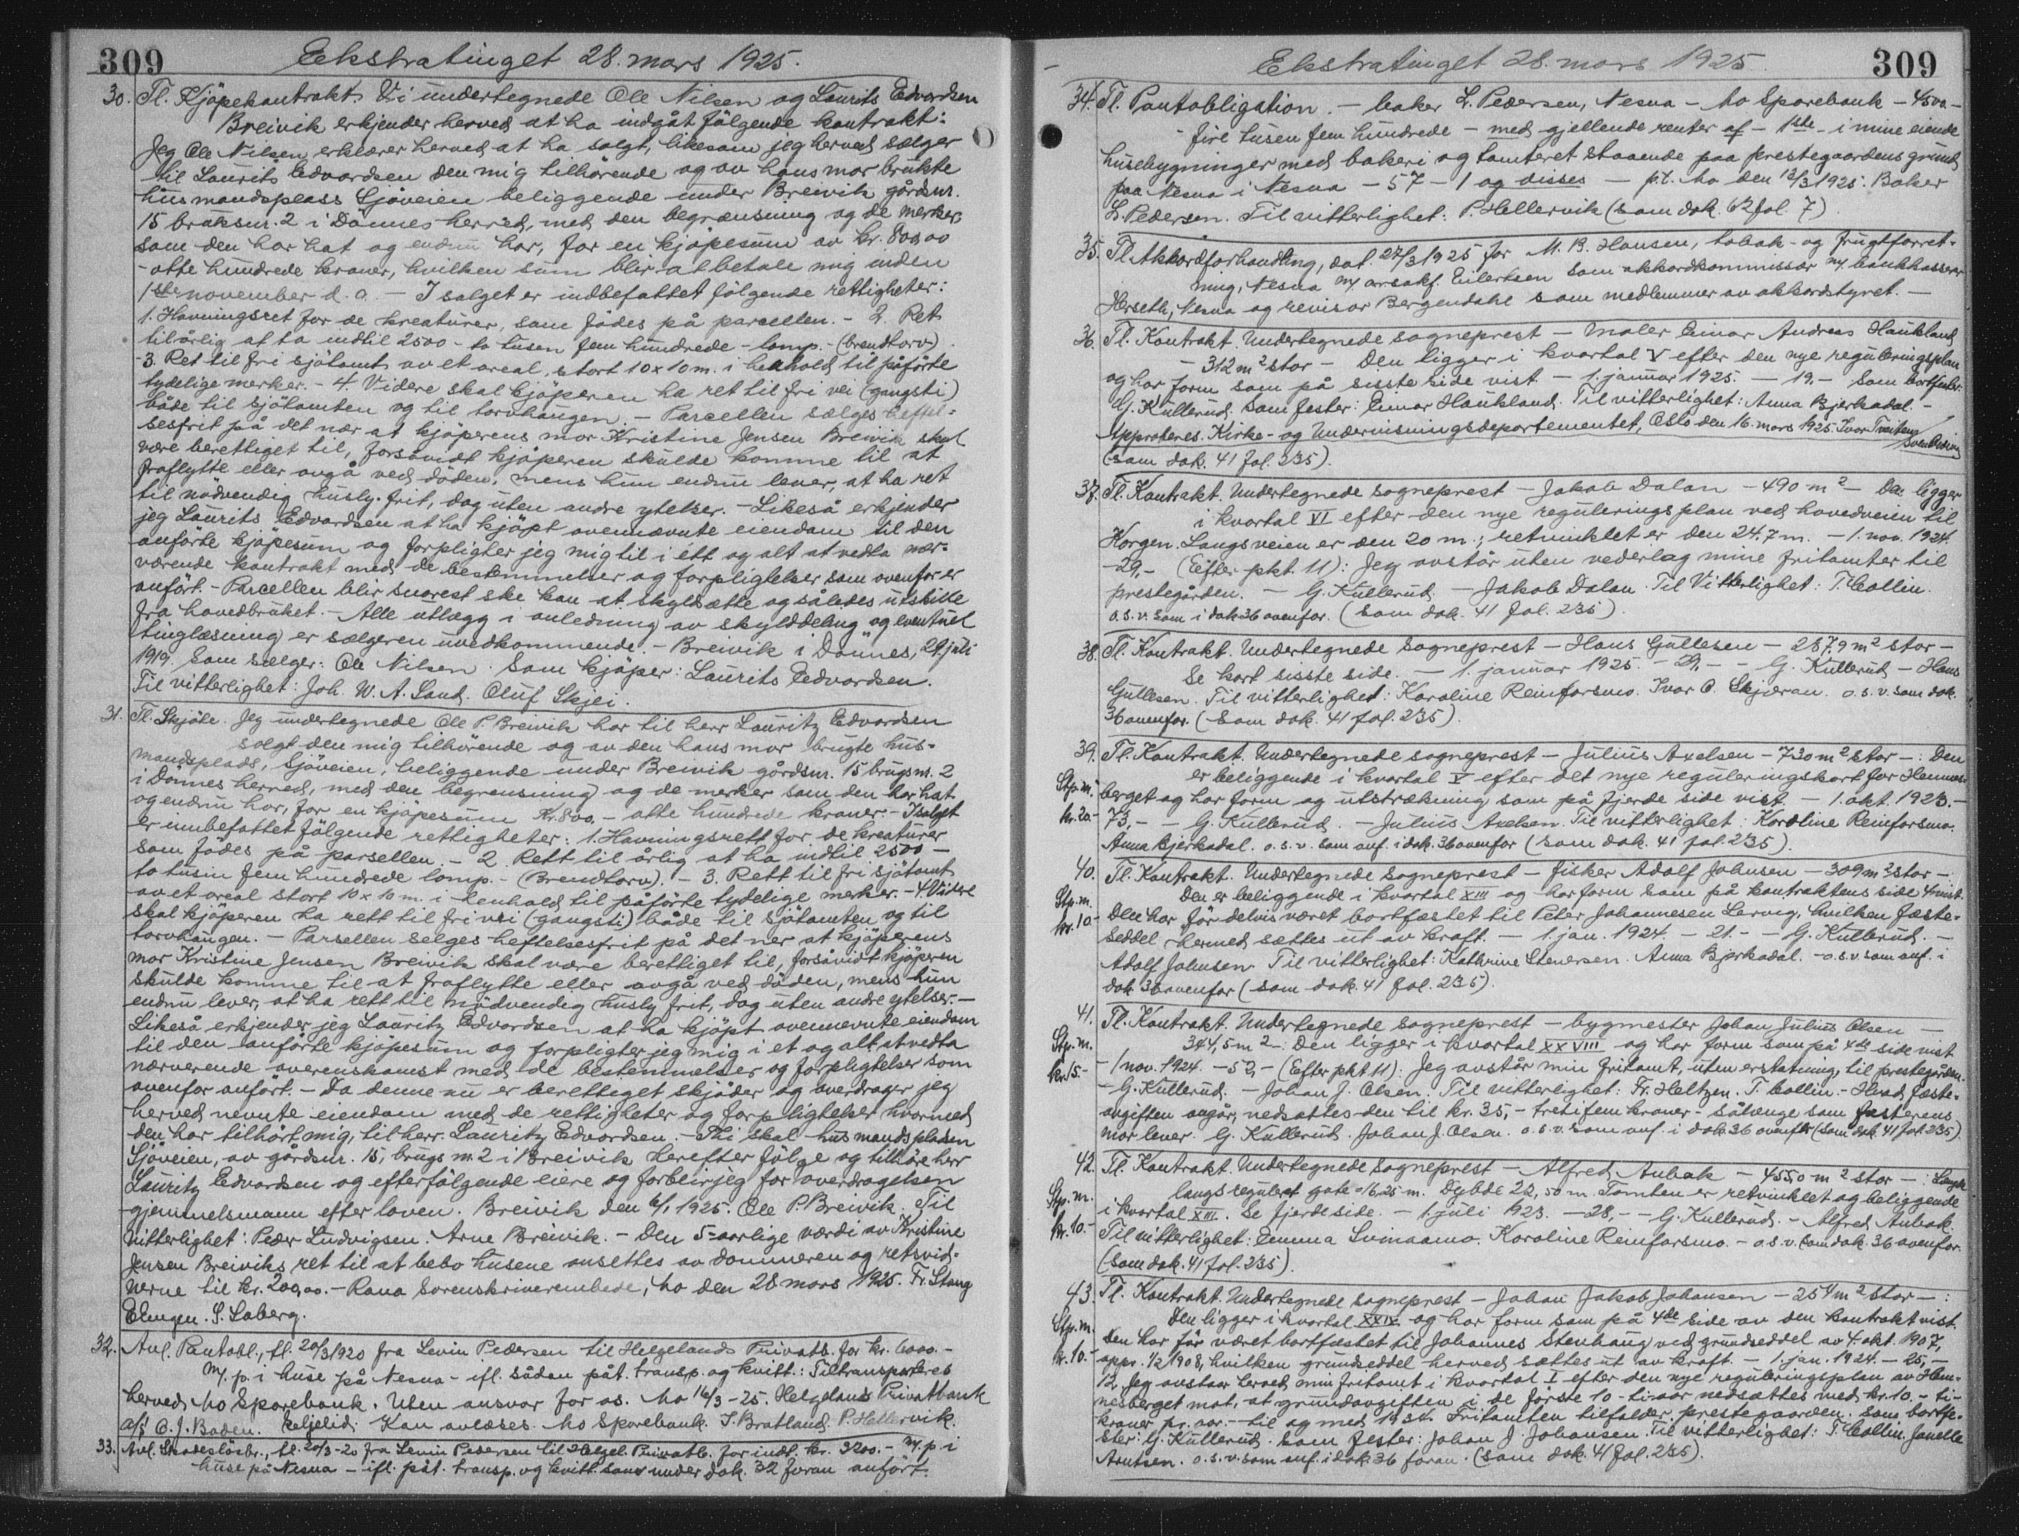 309
Ekstratinget 28. mars 1925.
30. Tl. Kjöpekontrakt. Vi undertegnede Ole Nilsen og Laurits Edvardsen
Breivik erkjender herved at ha indgåt følgende kontrakt:
Jeg Ole Nilsen erklærer herved at ha solgt, likesom jeg herved sælger
til Laurits Edvardsen den mig tilhörende og av hans mor brukte
husmandsplass Sjöveien beliggende under Breivik gårdsnr.
15 bruksnr. 2 i Dönnes herred, med den begrænsning og de merker,
som den har hat og endnu har, for en kjöpesum av kr. 800,00
- otte hundrede kroner, hvilken sum blir at betale mig inden
1ste november d. a. - I salget er indbefattet følgende rettigheter:
1. Havningsret for de kreaturer, som födes på parcellen. - 2. Ret
til årlig at ta indtil 2500 - to tusen fem hundrede - lomp. - (brendtorv)
- 3. Ret til fri sjötomt av et areal, stort 10 x 10 m. i henhold til påförte
tydelige merker. - 4. Videre skal kjöperen ha ret til fri vei (gangsti)
både til sjötomten og til torvhaugen. - Parcellen sælges heftel-
sesfrit på det nær at kjöperens mor Kristine Jensen Breivik skal
være berettiget til, forsåvidt kjöperen skulde komme til at
fraflytte eller avgå ved döden, mens hun endnu lever, at ha ret
til nödvendig husly frit, dog uten andre ytelser. - Likeså erkjender
jeg Laurits Edvardsen at ha kjöpt ovennævnte eiendom til den
anförte kjöpesum og forpligter jeg mig til i ett og alt at vedta nær-
værende kontrakt med de bestemmelser og forpligtelser som ovenfor er
anfört. - Parcellen blir snarest ske kan at skyldsætte og således utskille
fra hovedbruket. - Alle utlæg i anledning av skylddeling og eventuel
tinglæsning er sælgeren uvedkommende. - Breivik i Dönnes, 24 juli
1919. Som sælger: Ole Nilsen. Som kjöper: Laurits Edvardsen.
Til vitterlighet: Joh. W. A. Sand. Oluf Skjei.
31. Tl. Skjöte. Jeg undertegnede Ole P. Breivik har til herr Lauritz Edvardsen
solgt den mig tilhörende og av den hans mor brugte hus-
mandsplads, Sjöveien, beliggende under Breivik gårdsnr. 15 brugsnr. 2
i Dönnes herred, med den begrensning og de merker som den har hat
og endnu har, for en kjöpesum Kr. 800. - otte hundrede kroner. - I salget
er innbefattet følgende rettigheter: 1. Havningsrett for de kreaturer
som födes på parsellen. - 2. Rett til årlig at ha indtil 2500 -
to tusin fem hundrede lomp. - (Brendtorv). - 3. Rett til fri sjötomt
av et areal stort 10 x 10 m. i henhold til påförte tydelige merker. - 4. Videre
skal kjöperen ha rett til fri vei (gangsti) både til sjötomten og til
torvhaugen. - Parsellen selges heftelsesfrit på det nær at kjöperens
mor Kristine Jensen Breivik skal være berettiget til, forsåvidt kjöperen
skulde komme til at fraflytte eller avgå ved döden, mens hun
endnu lever, at ha rett til nödvendig husly frit, dog uten andre ytelser. -
Likeså erkjender jeg Lauritz Edvardsen at ha kjöpt ovennevnte eiendom
til den anförte kjöpesum og forpligter jeg mig i et og alt at vedta
nærverende overenskomst med de bestemmelser og forpligtelser som
ovenfor anfört. - Da denne nu er berettiget skjöder og overdrager jeg
herved nevnte eiendom med de rettigheter og forpligtelser hvormed
den har tilhört mig, til herr. Lauritz Edvardsen. - Thi skal husmandspladsen
Sjöveien, av gårdsnr. 15, brugsnr. 2 i Breivik herefter fölge og tilhöre herr
Lauritz Edvardsen og efterfölgende eiere og forblir jeg for overdragelsen
hjemmelsmann efter loven. Breivik den 6/1 1925. Ole P. Breivik. Til
vitterlighet: Peder Ludvigsen. Arne Breivik. - Den 5-aarlige værdi av Kristine
Jensen Breiviks ret til at bebo husene ansettes av dommeren og retsvid-
nerne til kr. 200,00. - Rana Sorenskriverembede, Mo den 28 mars 1925. Fr. Stang
Elingen. S. Saberg.
32. Avl. Pantobl., tl. 20/3 1920 fra Levin Pedersen til Helgelands Privatb. for kr. 6000. -
m. p. i huse på Nesna - ifl. sådan påt. transp. og kvitt.: Tiltransporteres
herved Mo Sparebank. Uten ansvar for os. Mo 16/3 - 25. Helgelands Privatbank
a/s O. J. Boden. Kan avlæses. Mo Sparebank. S. Bratland. P. Hellervik.
33. Avl. Skadeslösbr., tl. 20/3 - 20 fra Levin Pedersen til Helgel. Privatb. for indt. kr. 3200. - m. p. i
huse på Nesna - ifl. påt. transp. og kvitt. som under dok. 32 foran anfört.
309
Ekstratinget 28. mars 1925
34. Tl. Pantobligation. - baker L. Pedersen, Nesna - Mo Sparebank - 4500 -
fire tusen fem hundrede - med gjellende renter af - 1ste - i mine eiende
husebygninger med bakeri og tomteret staaende paa prestegaardens grund
paa Nesna i Nesna - 57 - 1 og disses - p. t. Mo den 13/3 1925. Baker
L. Pedersen. Til vitterlighet: P. Hellervik (som dok. 62 fol. 7)
35. Tl. Akkordforhandling, dat. 27/3 1925 for M. B. Hansen, tobak- og frugtforret-
ning, Nesna m/ o.r.sakf. Eilertsen som akkordkommissær m/ bankkasserer
Herseth, Nesna og revisor Bergendahl som medlemmer av akkordstyret. -
36. Tl. Kontrakt. Undertegnede sogneprest - Maler Einar Andreas Haukland
- 312 m² stor - Den ligger i kvartal V efter den nye reguleringsplan
og har form som på sisste side vist - 1. januar 1925. - 19, - Som bortfester
G. Kullerud. Som fester: Einar Haukland. Til vitterlighet: Anna Bjerkadal. -
Approberes. Kirke- og Undervisningsdepartementet, Oslo den 16. mars 1925. Ivar Tveiten
(som dok. 41 fol. 235).
37. Tl. Kontrakt. Undertegnede sogneprest - Jakob Dalan - 490 m² - Den ligger
i kvartal VI efter den nye reguleringsplan ved hovedveien til
Korgen. Langs veien er den 20 m.; retvinklet er den 24,7 m. - 1. nov. 1924
- 29, - (Efter pkt. 11): Jeg avstår uten vederlag mine fritomter til
prestegården. - G. Kullerud - Jakob Dalan. Til Vitterlighet: T. Collin.
o.s.v. som i dok 36 ovenfor. (som dok. 41 fol. 235)
38. Tl. Kontrakt. Undertegnede sogneprest - Hans Gullesen - 287,9 m² stor -
Se kart sisste side. - 1. januar 1925 - 29, - - G. Kullerud - Hans
Gullesen. Til vitterlighet: Karoline Reinforsmo. Ivar O. Skjæran. o.s.v. som dok.
36 ovenfor. (som dok. 41 fol. 235).
39. Tl. Kontrakt. Undertegnede sogneprest - Julius Axelsen - 730 m² stor - : Den
er beliggende i kvartal V efter det nye reguleringskart for Hemnes-
Stp. m. berget og har form og utstrækning som på fjerde side vist - 1. okt. 1923. -
kr. 20 - 73, - - G. Kullerud. - Julius Axelsen. Til vitterlighet: Karoline Reinforsmo.
Anna Bjerkadal. o.s.v. som anf. i dok. 36 ovenfor (som dok. 41 fol. 235).
40. Tl. Kontrakt. Undertegnede sogneprest - fisker Adolf Johnsen - 309 m² stor - :
Stp. m. Den er beliggende i kvartal XIII og har form som på kontraktens side 4 vist.
kr. 10 - Den har för delvis været bortfæstet til Peter Johannesen Lervig, hvilken fæste-
seddel hermed sættes ut av kraft. - 1. jan. 1924 - 21. - - G. Kullerud. -
Adolf Johnsen. Til vitterlighet: Kathrine Stenersen. Anna Bjerkadal. - o.s.v. som anf. i
dok 36 ovenfor (som dok. 41 fol. 235).
41. Tl. Kontrakt. Undertegnede sogneprest - bygmester Johan Julius Olsen -
Stp. m. 344,5 m² - : Den ligger i kvartal XXVIII og har form som på 4de side vist
kr. 15 - - 1 nov. 1924. - 52, - (Efter pkt. 11): Jeg avstår min fritomt, uten erstatning, til prestegården.
- G. Kullerud. - Johan J. Olsen. Til vitterlighet: Fr. Heltzen. T. Collin. - Hvad fæste-
avgiften angår, nedsættes den til kr. 35, - tretifem kroner - sålænge som festerens
mor lever. G. Kullerud. Johan J. Olsen. o.s.v. som anf. i dok. 36 ovenfor (som dok. 41 fol. 235)
42. Tl. Kontrakt. Undertegnede sogneprest - Alfred Aubak - 455,0 m² stor - : Længde
Stp. m. langs regulert gate 16,25 m. Dybde 28,50 m. Tomten er retvinklet og beliggende
i kvartal XIII. Se fjerde side. - 1. juli 1923. - 28, - - G. Kullerud. - Alfred Aubak.
kr. 10. - Til vitterlighet: Emma Svinaamo. Karoline Reinforsmo. - o.s.v. som dok. 36 ovenfor.
(som dok. 41 fol. 235).
43. Tl. Kontrakt. Undertegnede sogneprest - Johan Jakob Johansen - 254 m² stor - :
Stp. m. Den ligger i kvartal XXIX og har form som på 4de side av den kontrakt vist.
Den har för været bortfæstet til Johannes Stenhaug ved grundseddel av 4. okt. 1907,
kr. 10. - appr. 1/2 1908, hvilken grundseddel herved sættes ut av kraft - 1. jan. 1924. - 25, -
12. Jeg avstaar herved min fritomt i kvartal I efter den nye reguleringsplan av Hem-
nesberget mot, at grundavgiften i de förste 10 - ti - aar nedsættes med kr. 10. - ti -
kroner pr. aar. - til og med 1934. Fritomten tilfalder prestegaarden. Som bortfe-
ster: G. Kullerud. Som fester: Johan J. Johansen. Til vitterlighet: T. Collin. Janette
Arntsen. o.s.v. som anf. i dok 36 foran. (som dok. 41 fol. 235).